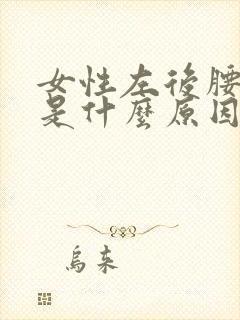 女性左後腰
是什麼原因
烏来